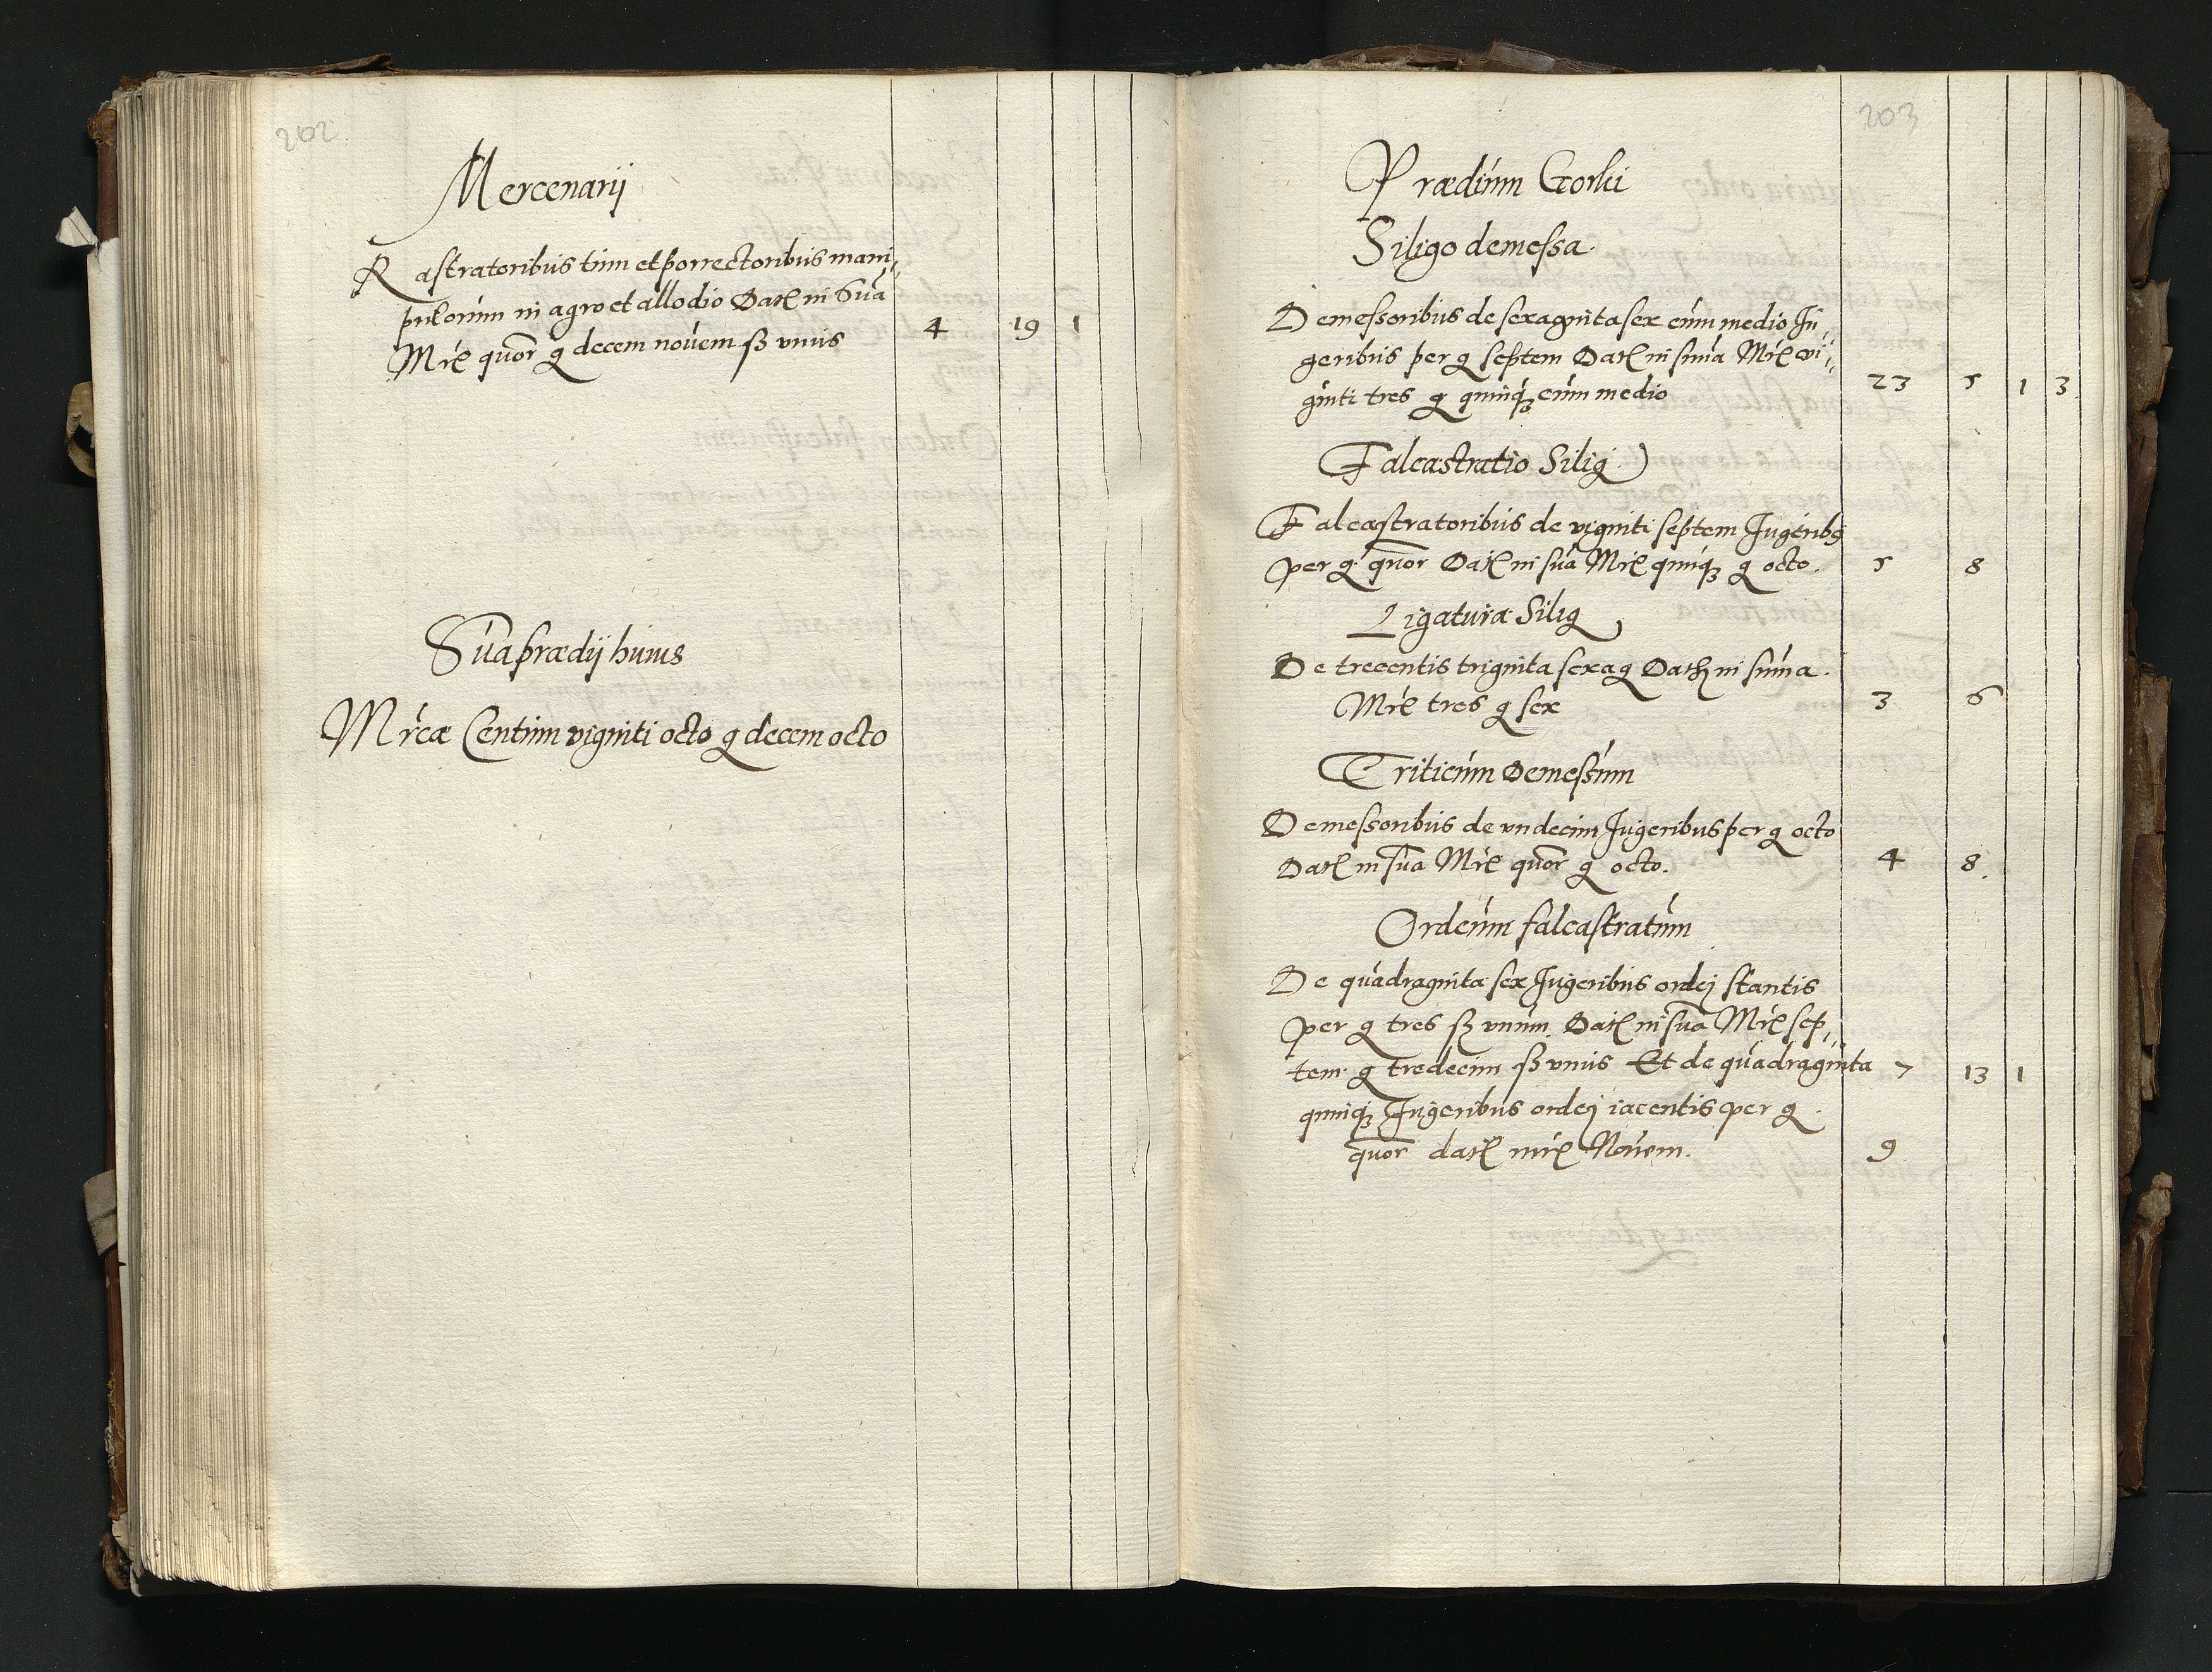 202
Mercenarij
Rastratoribus tum et porrectoribus mani„
pulorum in agro et allodio Datꝭ in Sua
Mrꝭ quor g decem novem ß unius 4 19 1
Sua prædij huius
Mrcæ Centum viginti octo g decem octo
203
Prædium Gorki
Siligo demessa.
Demessoribus de sexaginta sex cum medio Iu„
geribus per g septem Datꝭ in suma Mrꝭ vi„
ginti tres g quinqꝫ cum medio 23 5 1 3
Falcastratio Silig.
Falcastratoribus de viginti septem Iugeribꝫ
per g quor Datꝭ in sua Mrꝭ quinqꝫ g octo. 5 8
Ligatura Silig
De trecentis triginta sexag Datꝭ in suma.
Mrꝭ tres g sex 3 6
Triticum Demessum
Demessoribus de undecim Iugeribus per g octo
Datꝭ in sua Mrꝭ quor g octo. 4 8.
Ordeum falcastratum
De quadraginta sex Iugeribus ordej stantis
per g tres ß unum Datꝭ in sua Mrꝭ sep„
tem g tredecim ß unius Et de quadraginta 7 13 1
quinqꝫ Iugeribus ordej iacentis per g.
quor datꝭ mrꝭ Novem. 9